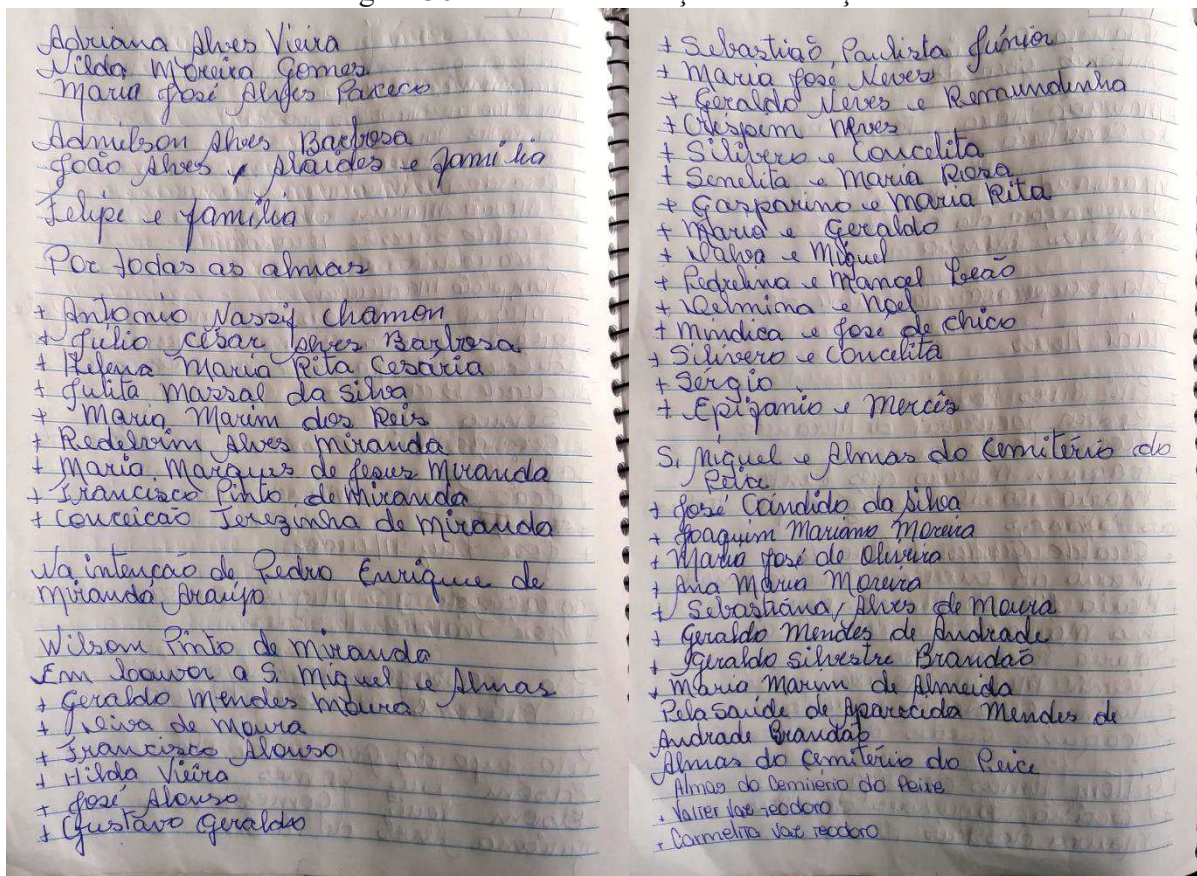 Adriana Alves Vieira
Nilda Moreira Gomes
Maria José Alves Paceco
Admilson Alves Barbosa
João Alves, Alaides e família
Felipe e família
Por todas as almas
+ Antonio Nassif Chamon
+ Júlio César Alves Barbosa
+ Helena Maria Rita Cesária
+ Julita Massal da Silva
+ Maria Marim dos Reis
+ Redelvim Alves Miranda
+ Maria Marques de Jesus Miranda
+ Francisco Pinto de Miranda
+ Conceicão Terezinha de Miranda
Na intenção de Pedro Enrique de
Miranda Araújo
Wilson Pinto de Miranda
Em louvor a S. Miguel e Almas
+ Geraldo Mendes Moura
+ Neiva de Moura
+ Francisco Alonso
+ Hilda Vieira
+ José Alonso
+ Gustavo Geraldo
+ Sebastião Paulista Júnior
+ Maria José Neves
+ Geraldo Neves e Remundinha
+ Crispim Neves
+ Silivero e Concelita
+ Senelita e Maria Rosa
+ Gasparino e Maria Rita
+ Maria e Geraldo
+ Dalva e Miguel
+ Pedrelina e Manoel Leão
+ Delmina e Noel
+ Mindica e José de Chico
+ Silivero e Concelita
+ Sérgio
+ Epifanio e Mercês
S. Miguel e Almas do Cemitério do
Peixe
+ José Cândido da Silva
+ Joaquim Mariano Moreira
+ Maria José de Oliveira
+ Ana Maria Moreira
+ Sebastiana Alves de Moura
+ Geraldo Mendes de Andrade
+ Geraldo Silvestre Brandão
+ Maria Marim de Almeida
Pela Saúde de Aparecida Mendes de
Andrade Brandão
Almas do Cemitério do Peixe
Almas do Cemitério do Peixe
+ Valter Vaz Teodoro
+ Carmelita Vaz Teodoro